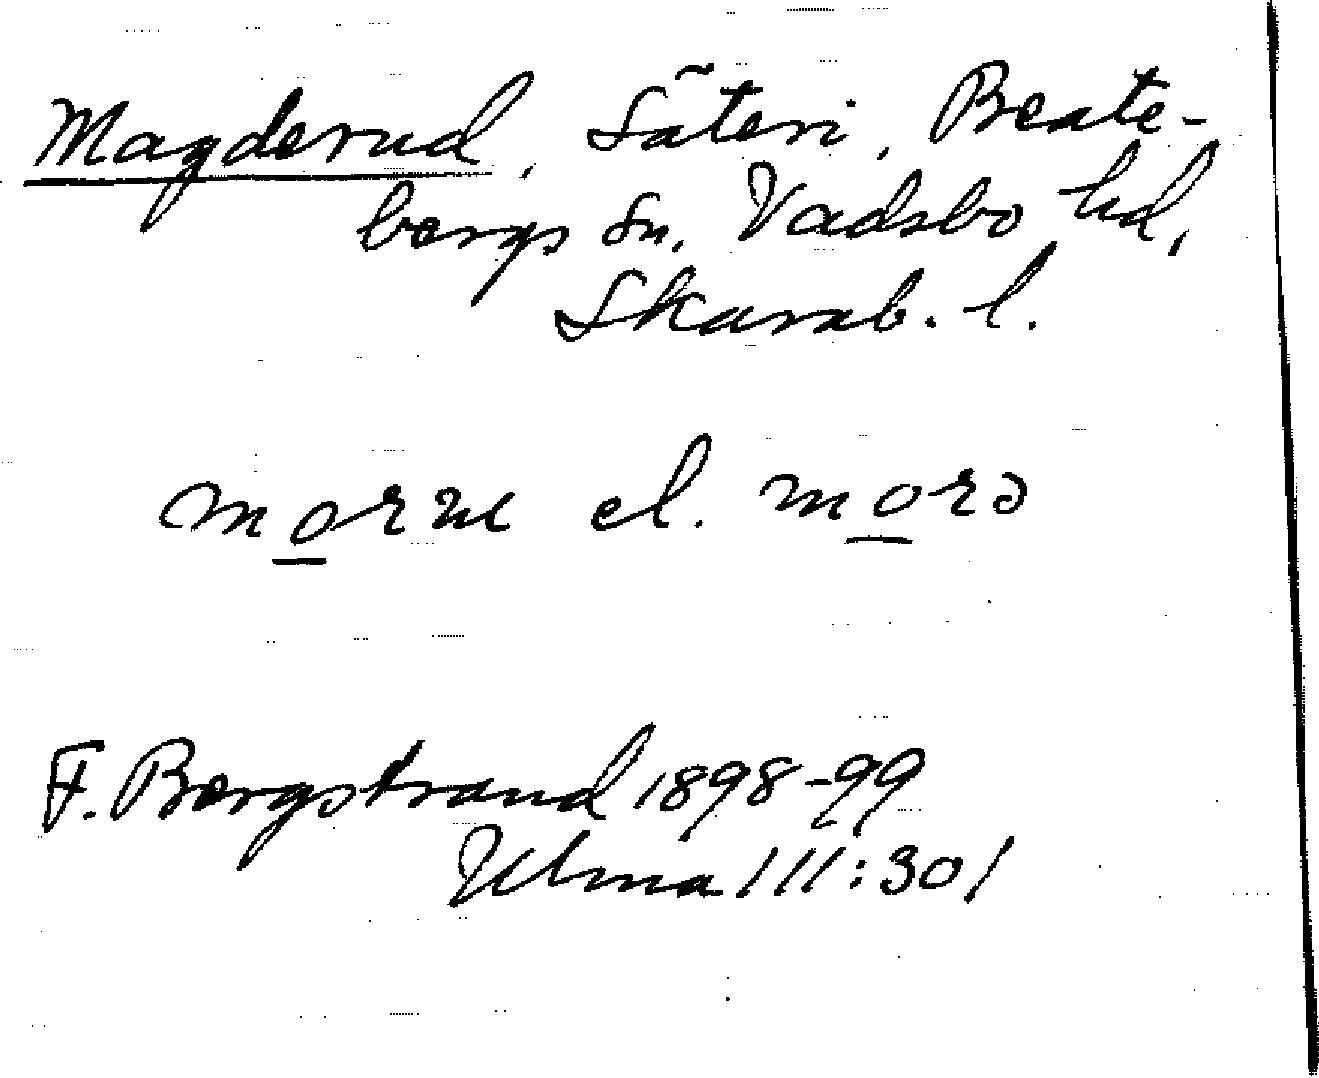 Magderud, Säteri, Beate-
bergs sn, Vadsbo hd,
Skarab. l.
el.
F. Bergstrand 1898-99
Ulma 111:301